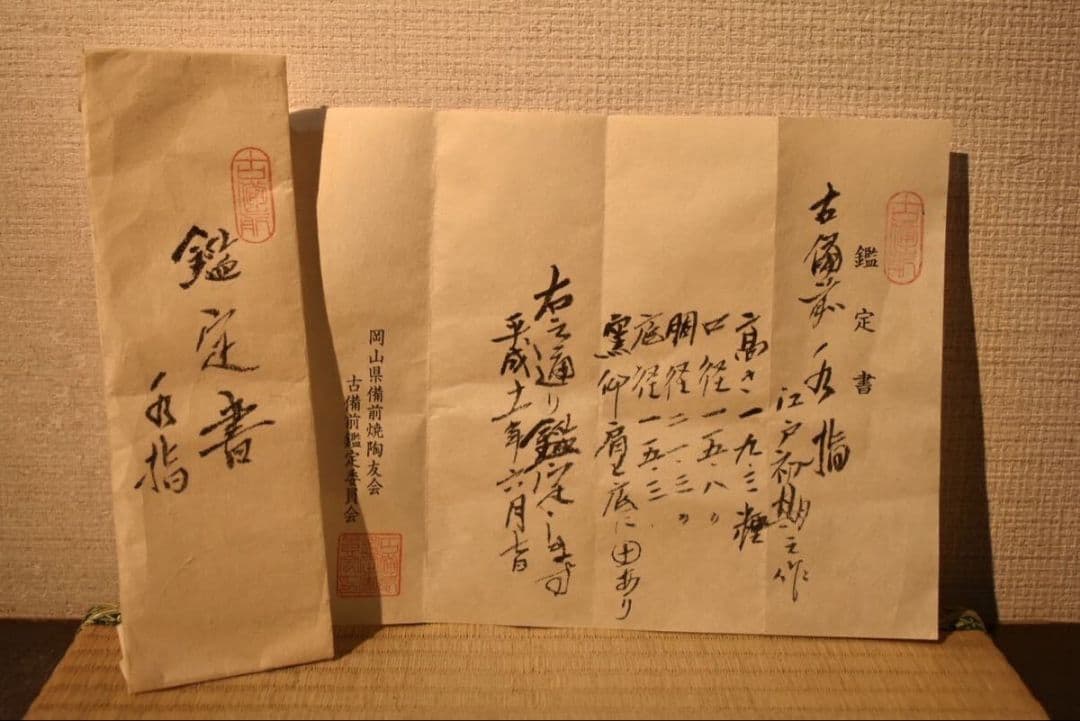 古備前
鑑定書
水指
古備前
鑑定書
古備前 水指
江戸初期之作
高さ一九.三糎
口径一五.八〃
胴径二一.三〃
底径一五.三〃
窯印肩と底に㊉あり
右之通り鑑定します
平成十一年六月吉日
岡山県備前焼陶友会
古備前鑑定委員会